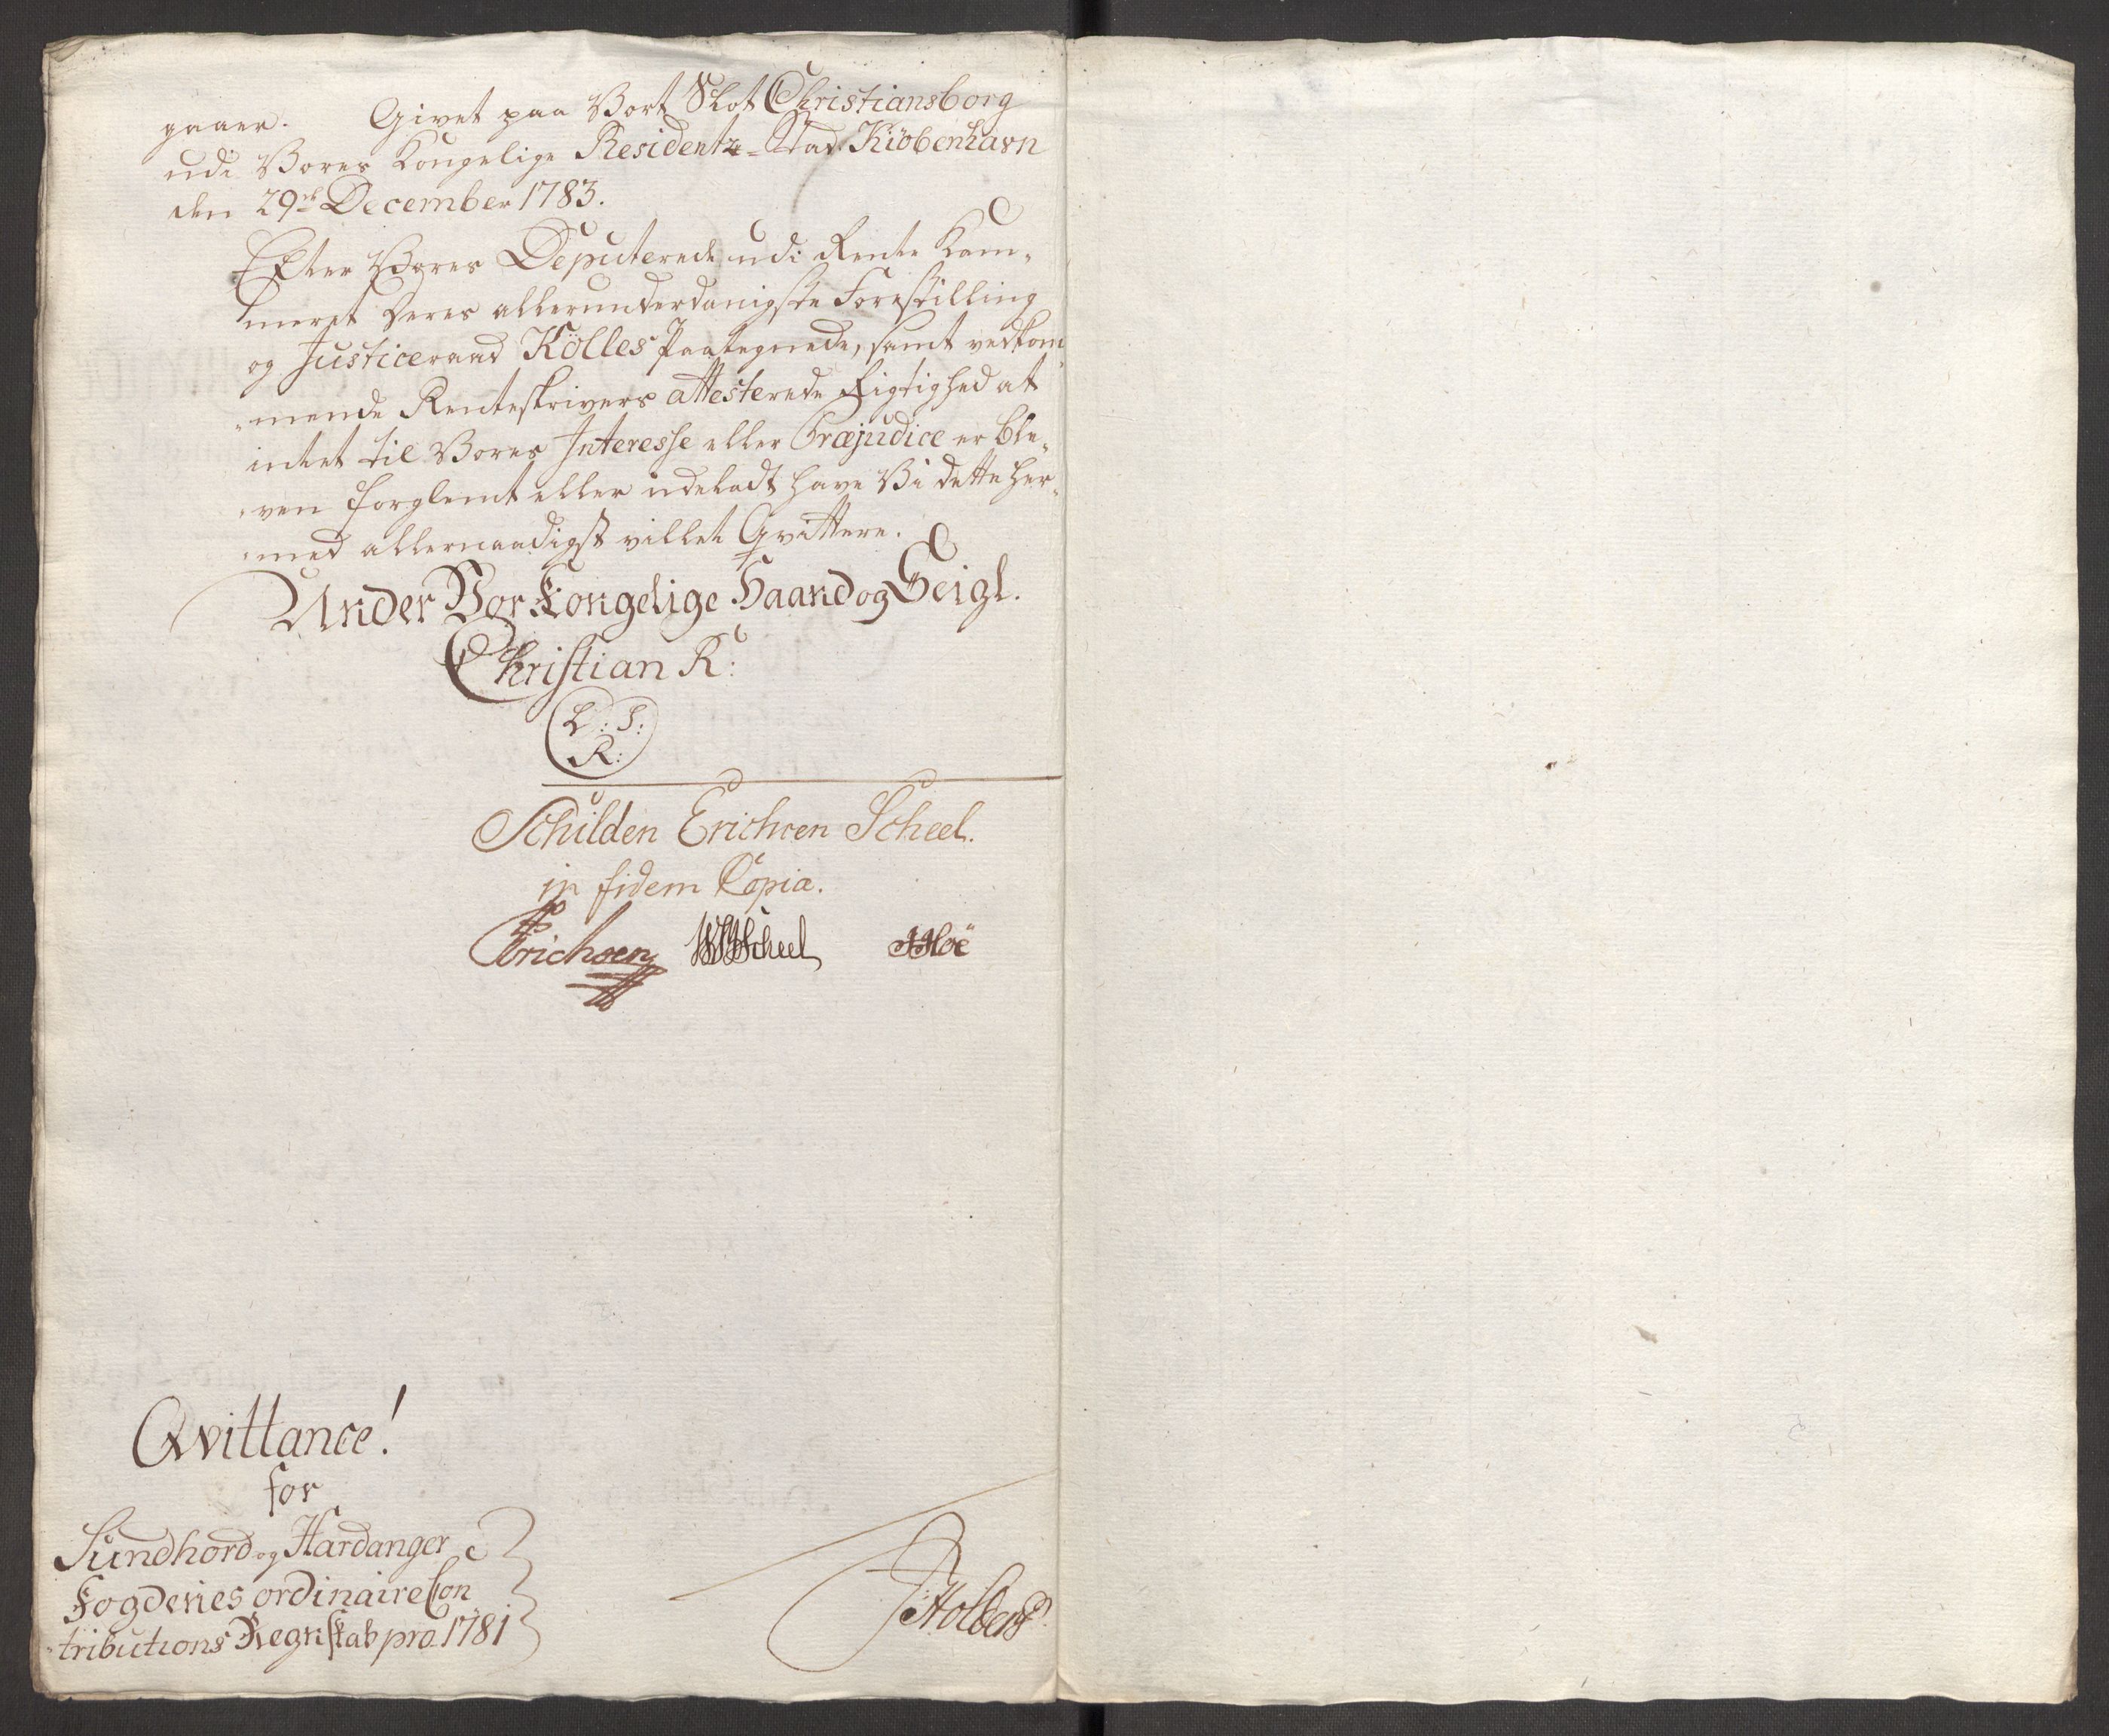 gaaer. Givet paa Vort Slot Christiansborg
udi Vores Kongelige Residentz-Stad Kiöbenhavn
den 29de December 1783.
Efter Vores Deputerede udi Rente Kam-
meret Deres allerunderdanigste Forestilling
og Justiceraad Kölles Paategnede, samt vedkom-
-mende Renteskrivers attesterede Rigtighed at
intet til Vores Interesse eller Præjudice er ble-
-ven forglemt eller udeladt have Vi dette her-
-med allernaadigst villet Qvittere.
Under Vor Kongelige Haand og Seigl.
Christian R:
L: S:
R:
Schilden Erichsen Scheel.
in fidem Copia.
Erichsen Scheel
Qvittance!
for
Sundhord og Hardanger
Fogderies ordinaire Con
-tributions Regnskab pro 1781